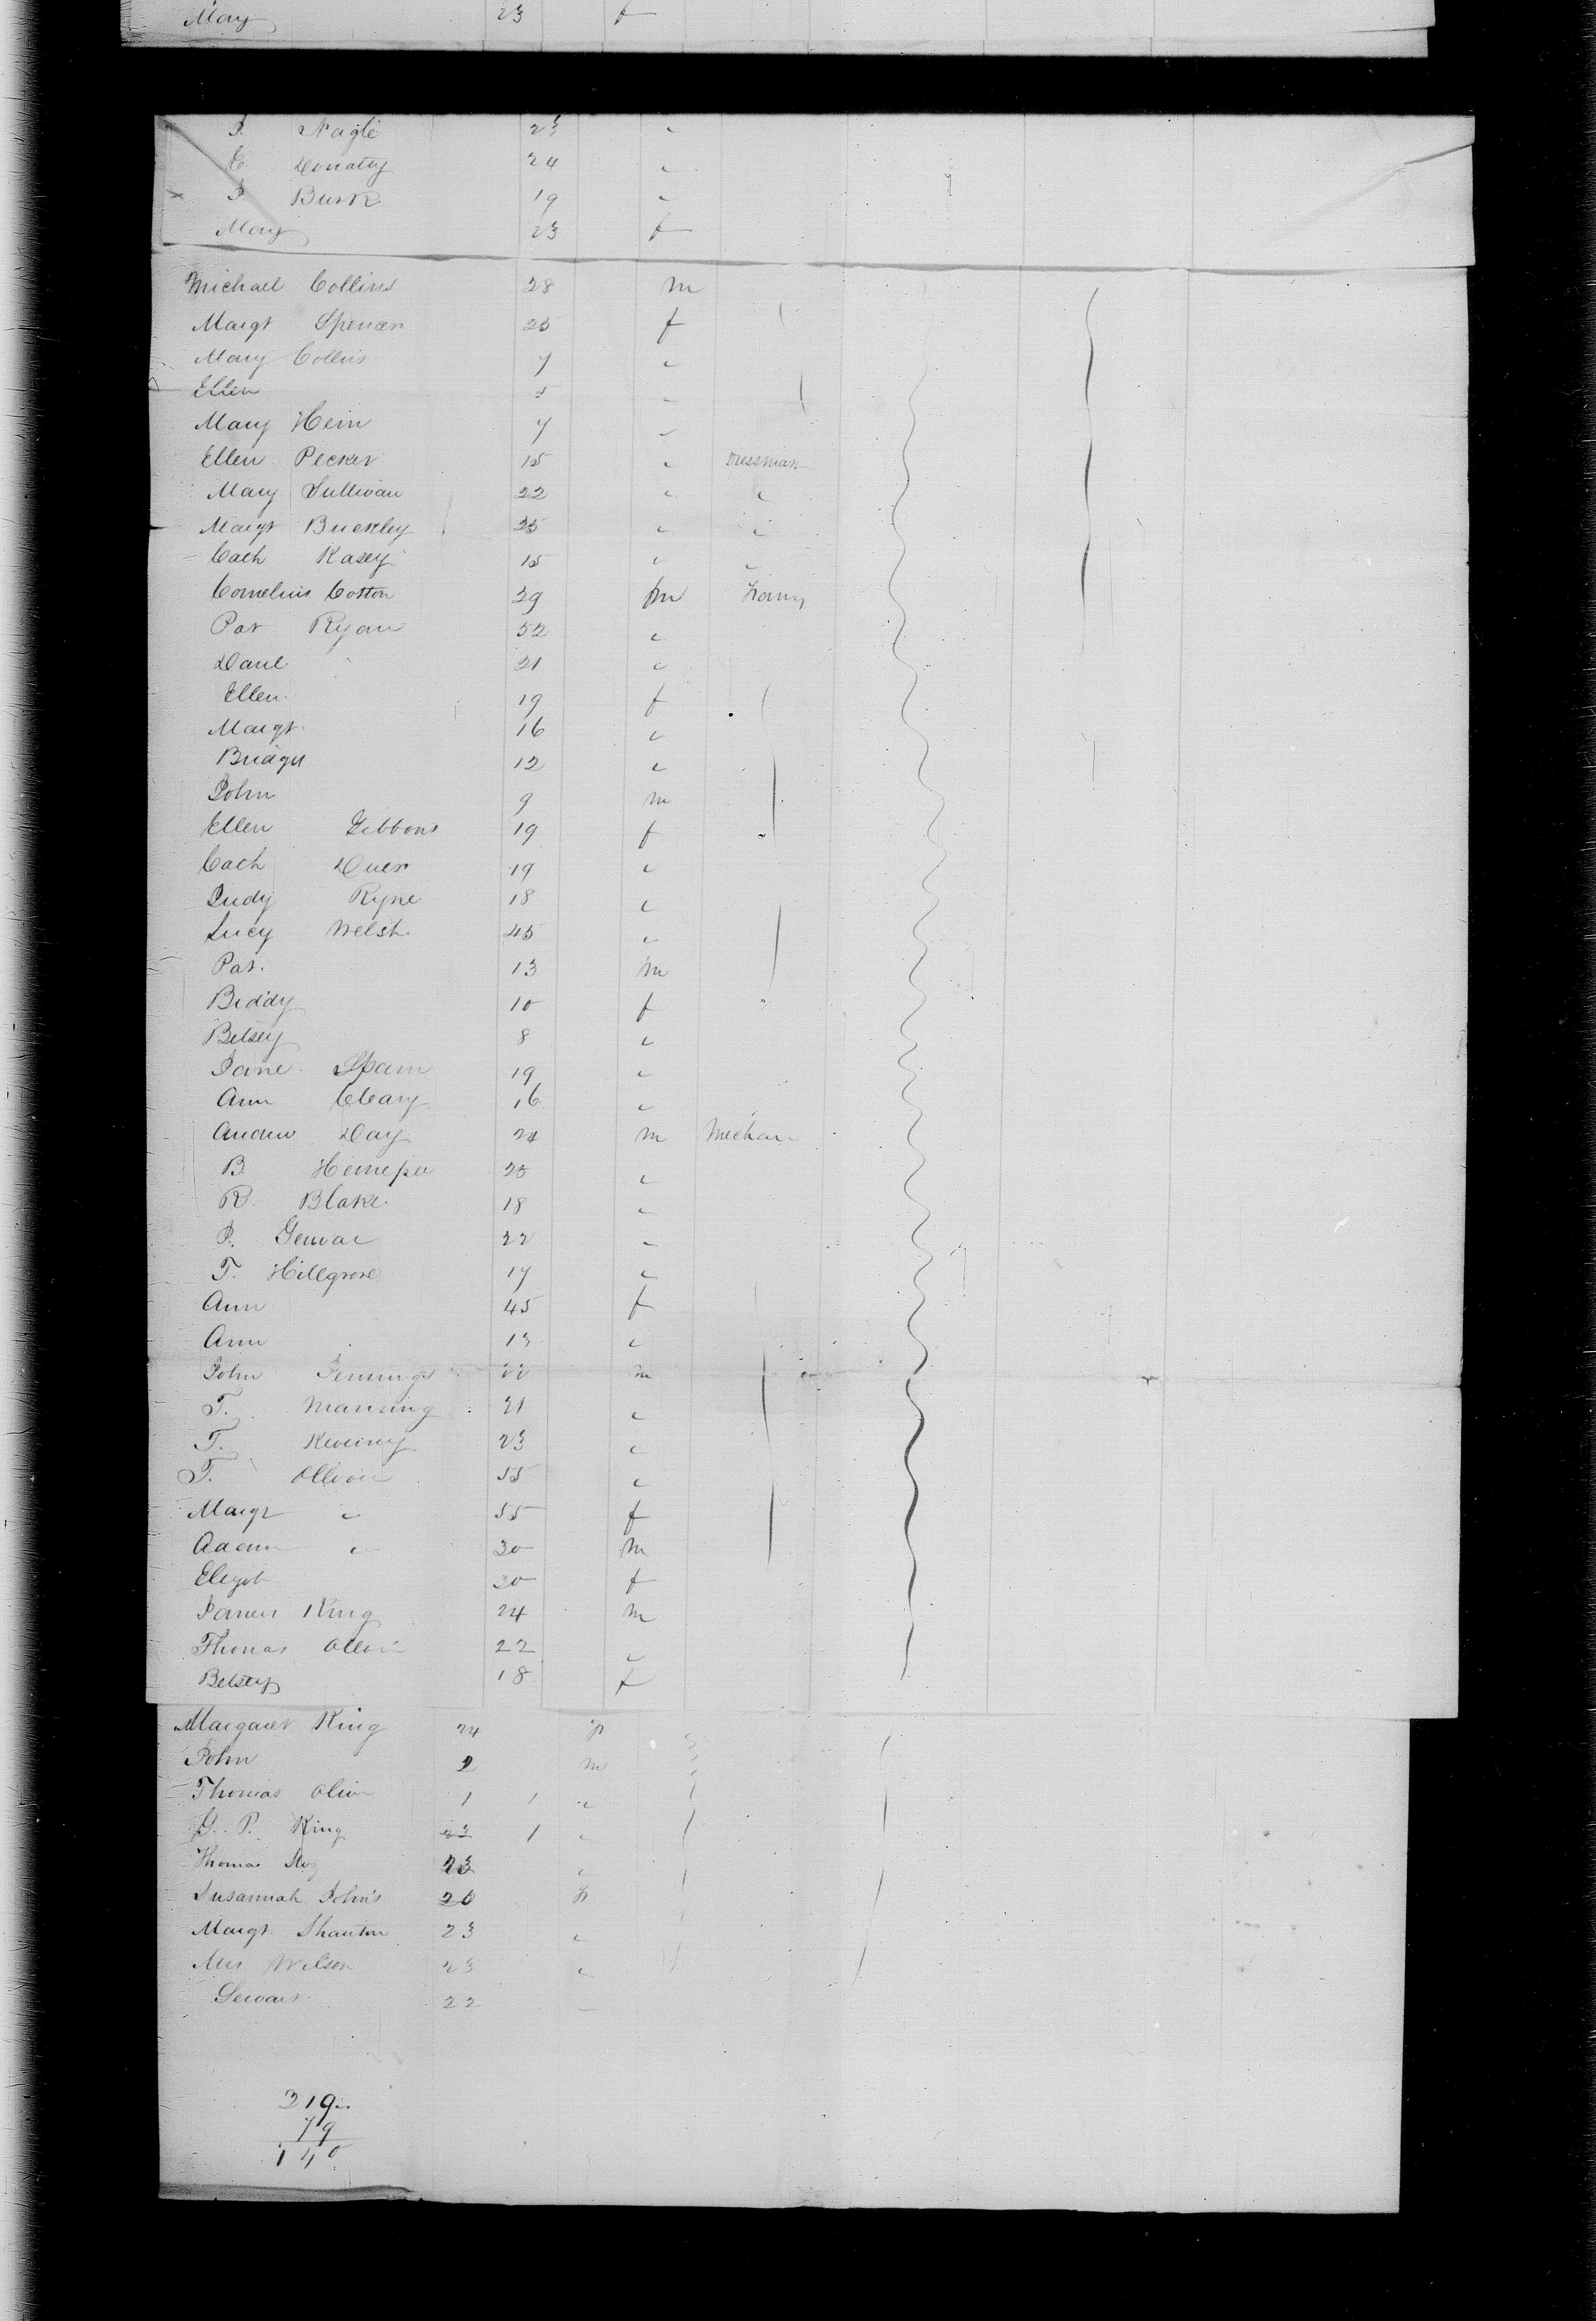 Mary 23 f
P. Nagle 23 "
Donatty 24 "
P. Burk 19 "
Mary 23 f
Michael Collins 28 m
Margt Spencer 25 f
Mary Collins 7 "
Ellen 5 "
Mary Hein 7 "
Ellen Pecker 15 " Dressmak
Mary Sullivan 22 " "
Margt Buckley 25 " "
Cath Kasey 15 " "
Cornelius Cotton 39 m
Pat Ryan 52 "
Danl 21 "
Ellen 19 f
Margt 16 "
Bridget 12 "
John 9 m
Ellen Gibbons 19 f
Cath Duer 19 "
Judy Ryne 18 "
Lucy Welsh 45 "
Pat. 13 m
Biddy 10 f
Betsey 8 "
Jane Spam 19 "
Ann Cleary 16 "
Andrew Day 24 m Mechan
B. 25 "
R. Blake 18 "
P. 22 "
T. Hillgrove 17 "
Ann 45 f
Ann 13 "
John Jennings 20 m
T. Manning 21 "
T. 23 "
T. Ollivir 55 "
Margt " 55 f
Adam " 30 m
Elizab 30 f
James King 24 m
Thomas Ollivir 22 "
Betsey 18 f
Margaret King 24 f
John 2 m
Thomas Oliver 1 1 "
G. P. King 23 1 "
Thomas 23 "
Susannah John's 20 f
Margt Shanton 23 "
Mrs Wilson 23 "
Servant 22 "
219
79
140